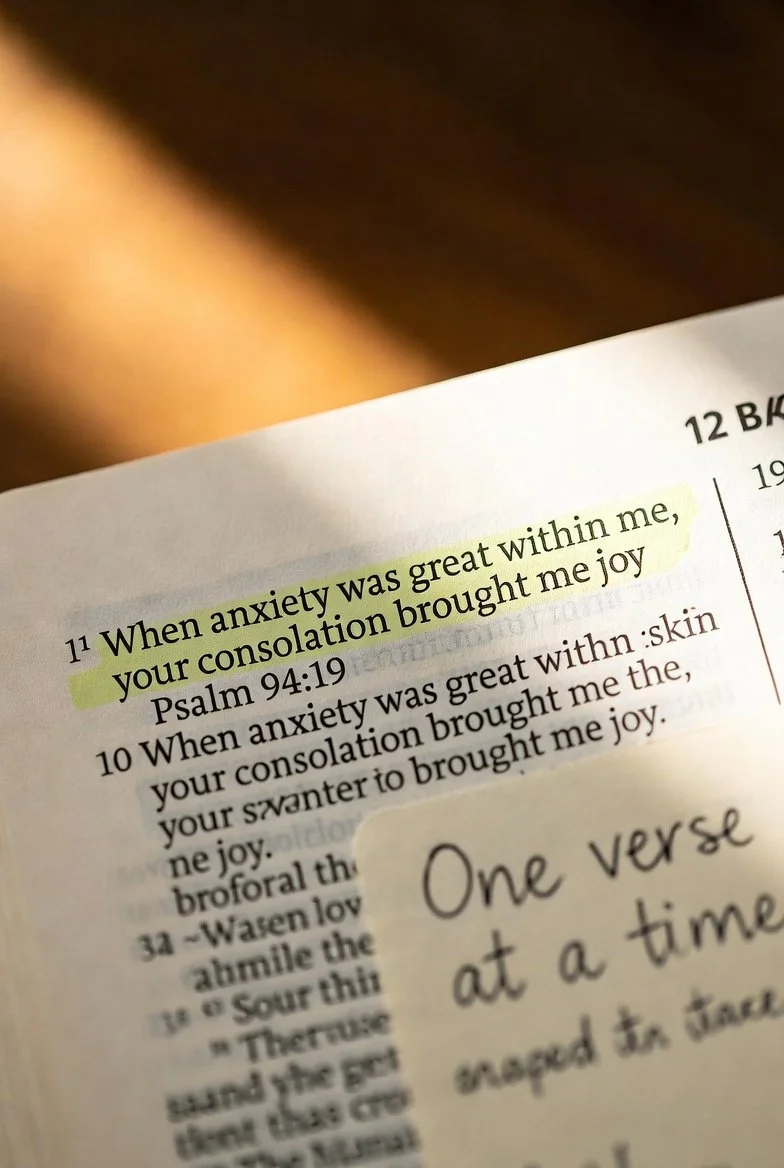 12 B
19
1¹ When anxiety was great within me,
your consolation brought me joy
Psalm 94:19
10 When anxiety was great withn :skin
your consolation brought me the,
your to brought me joy.
ne joy.
broforal th
32 ~Wasen lov
ahmile the
Sour thin
" Theruse
saand yhe get
tlont thas cro
The
One verse
at a time